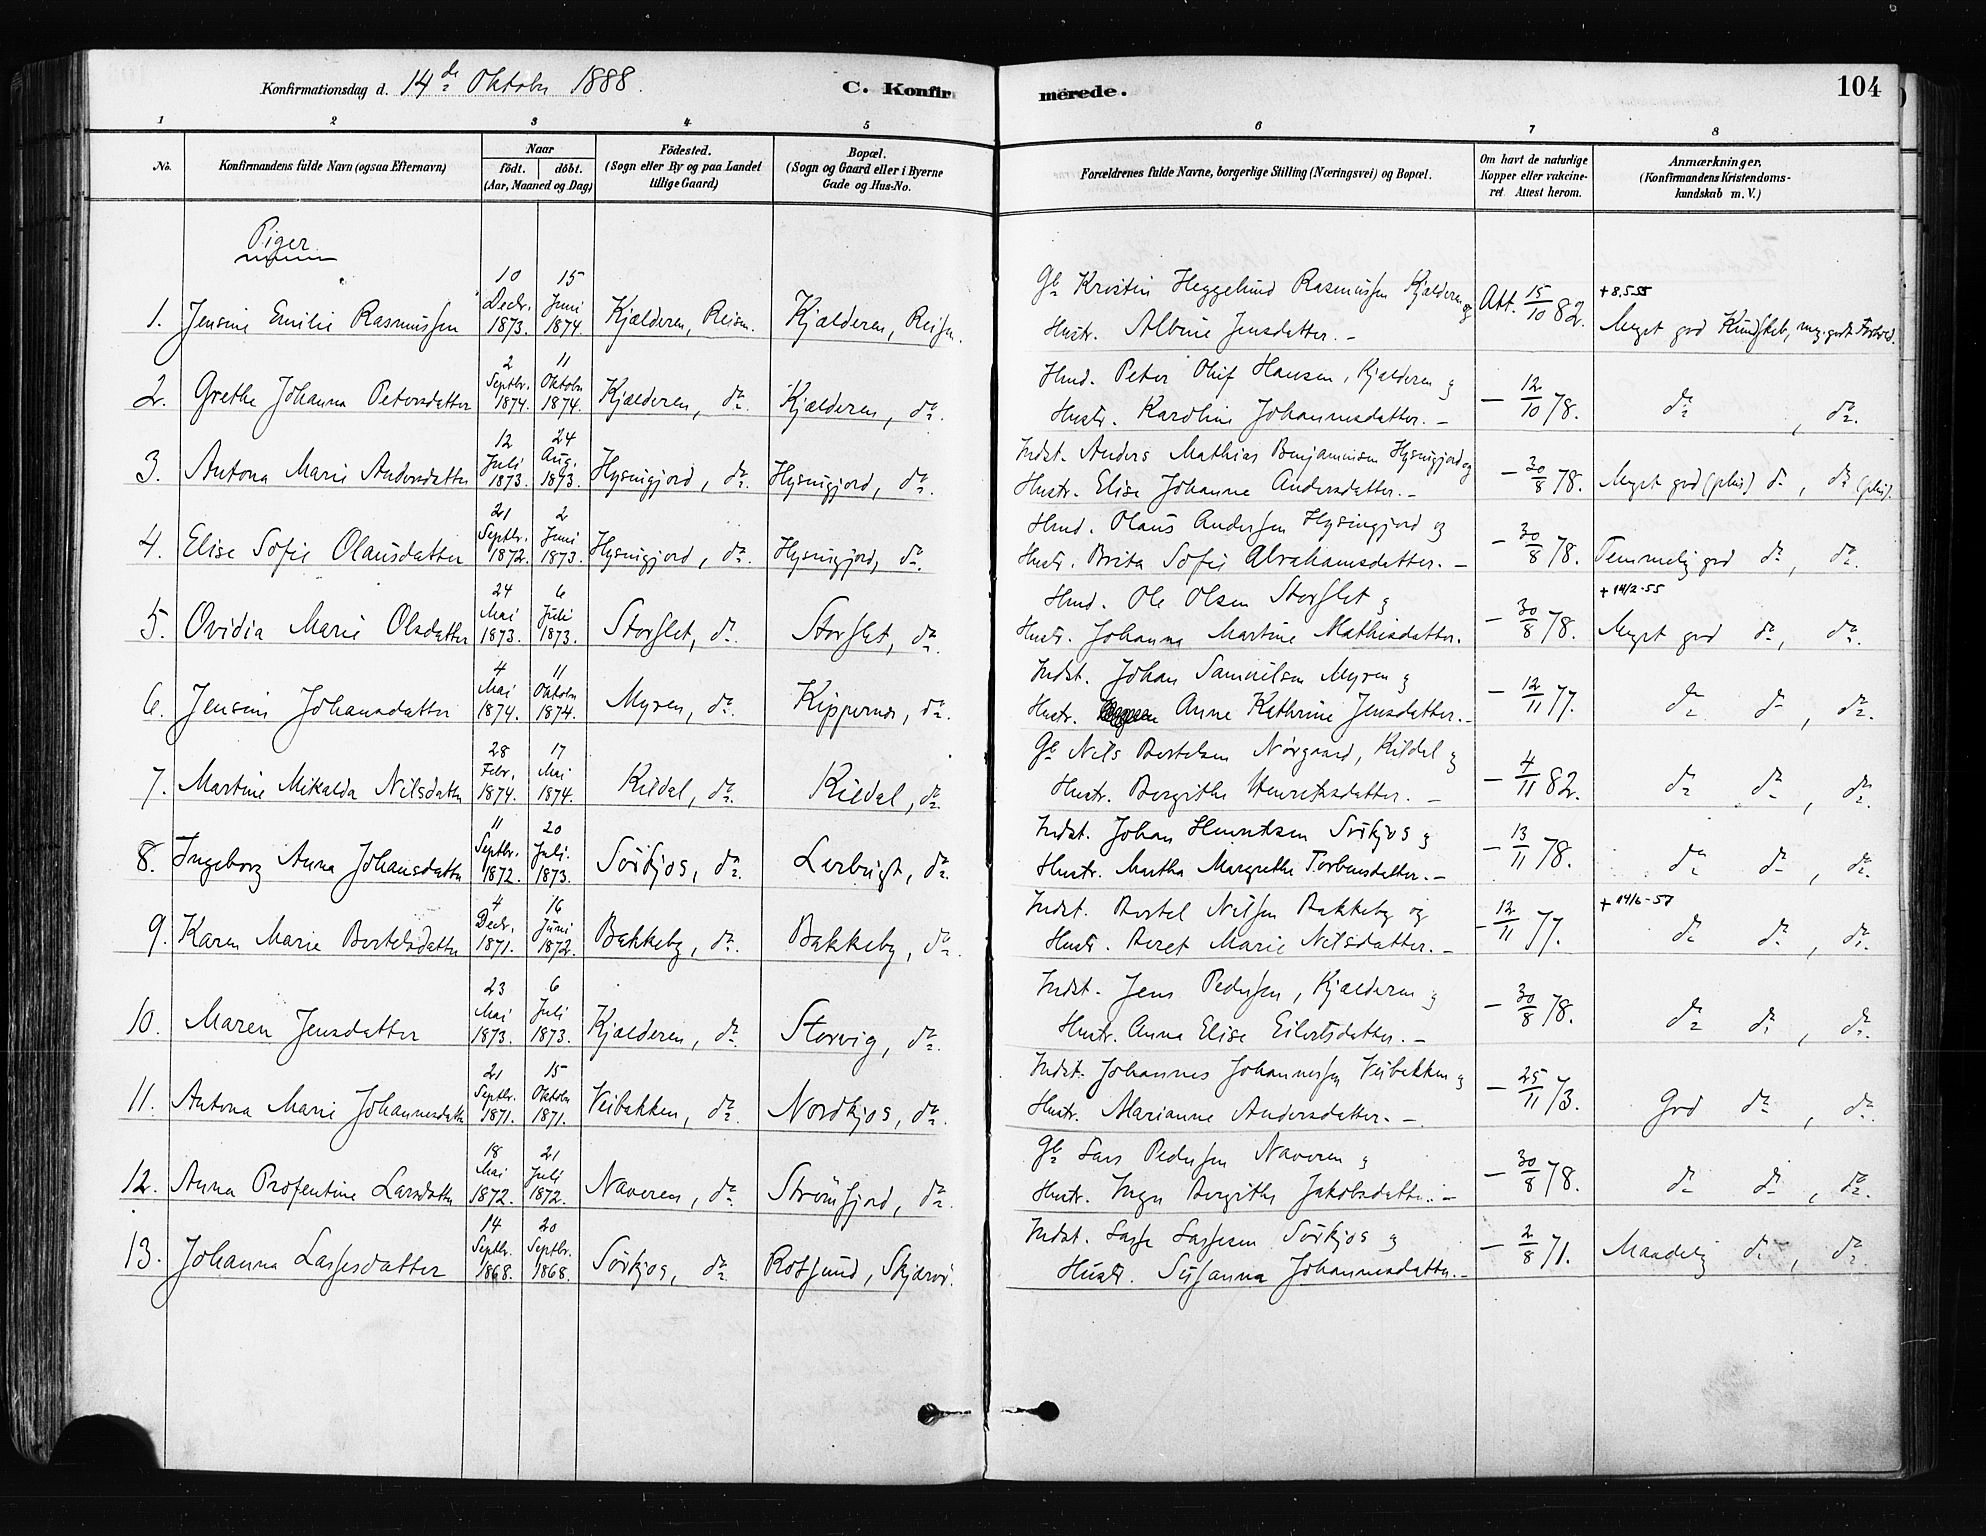 Konfirmationsdag d. 14de Oktober 1888.
C. Konfirmerede.
104
1 2 3 4 5 6 7 8
No.
Konfirmandens fulde Navn (ogsaa Efternavn)
Naar
födt. döbt.
(Aar, Maaned og Dag)
Födested.
(Sogn eller By og paa Landet
tillige Gaard)
Bopæl.
(Sogn og Gaard eller i Byerne
Gade og Hus-No.
Forældrenes fulde Navne, borgerlige Stilling (Næringsvei) og Bopæl.
Om havt de naturlige
Kopper eller vakcine-
ret. Attest herom.
Anmærkninger.
(Konfirmandens Kristendoms-
kundskab m. V.)
Piger
1. Jensine Emilie Rasmussen 10 Decbr. 1873. 15 Juni 1874. Kjælderen, Reisen. Kjælderen, Reisen.
Gb. Kristin Heggelund Rasmussen Kjælderen og
Hustr. Albine Jensdatter. – Att. 15/10 82. + 8.5.55
Meget god Kundskab, meg. godt Forhold.
2. Grethe Johanna Petersdatter 2 Septbr. 1874. 11 Oktober 1874. Kjælderen, do. Kjælderen, do.
Hmd. Peter Oluf Hansen, Kjælderen og
Hustr. Karoline Johannesdatter. – – 12/10 78. do , do.
3. Antona Marie Andersdatter 12 Juli 1873. 24 Aug. 1873. Hysingjord, do. Hysingjord, do.
Indst. Anders Mathias Benjaminsen Hysingjord og
Hustr. Elise Johanne Andersdatter. – – 30/8 78. Meget god (plus) do, do (plus).
4. Elise Sofie Olausdatter 21 Septbr. 1872. 2 Juni 1873. Hysingjord, do. Hysingjord, do.
Hmd. Olaus Andersen Hysingjord og
Hustr. Brita Sofie Abrahamsdatter. – – 30/8 78. Temmelig god do, do.
5. Ovidia Marie Olsdatter 24 Mai 1873. 6 Juli 1873. Storslet, do. Storslet, do.
Hmd. Ole Olsen Storslet og
Hustr. Johanna Martine Mathisdatter. – 30/8 78. + 14/2-55
Meget god do, do.
6. Jensine Johansdatter 4 Mai 1874. 11 Oktober 1874. Myren, do. Kippernes, do.
Indst. Johan Samuelsen Myren og
Hustr. Anne Kathrine Jensdatter. – – 12/11 77. do do, do.
7. Martine Mikalda Nilsdatter 28 Febr. 1874. 17 Mai 1874. Kildal, do. Kildal, do.
Gb. Nils Bertelsen Nørgaard, Kildal og
Hustr. Bergithe Henriksdatter. – – 4/11 82. do do, do.
8. Ingeborg Anna Johansdatter 11 Septbr. 1872. 20 Juli. 1873. Sörkjos, do. Lerbugt, do.
Indst. Johan Henriksen Sörkjos og
Hustr. Martha Margrethe Torbensdatter. – – 13/11 78. do do, do.
9. Karen Marie Bertelsdatter 4 Decbr. 1871. 16 Juni 1872. Bakkeby, do. Bakkeby, do.
Indst. Bertel Nilsen Bakkeby og
Hustr. Beret Marie Nilsdatter. – – 12/11 77. + 14/6-57
do do, do.
10. Maren Jensdatter 23 Mai 1873. 6 Juli 1873. Kjælderen, do. Storvig, do.
Indst. Jens Pedersen, Kjælderen og
Hustr. Anna Elise Eilertsdatter. – – 30/8 78. do do, do.
11. Antona Marie Johannesdatter 21 Septbr. 1871. 15 Oktober 1871. Veibakken, do. Nordkjos, do.
Indst. Johannes Johannessen Veibakken og
Hustr. Marianne Andersdatter. – – 25/11 73. God do, do.
12. Anna Profentine Larsdatter 18 Mai 1872. 21 Juli 1872. Naveren, do. Strömfjord, do.
Gb. Lars Pedersen Naveren og
Hustr. Inger Bergithe Jakobsdatter. – – 30/8 78. do do, do.
13. Johanna Lassesdatter 14 Septbr. 1868. 20 Septbr. 1868. Sörkjos, do. Rotsund, Skjærvö.
Indst. Lasse Lassesen Sörkjos og
Hustr. Susanna Johannesdatter. – – 2/8 71. Maadelig do, do.